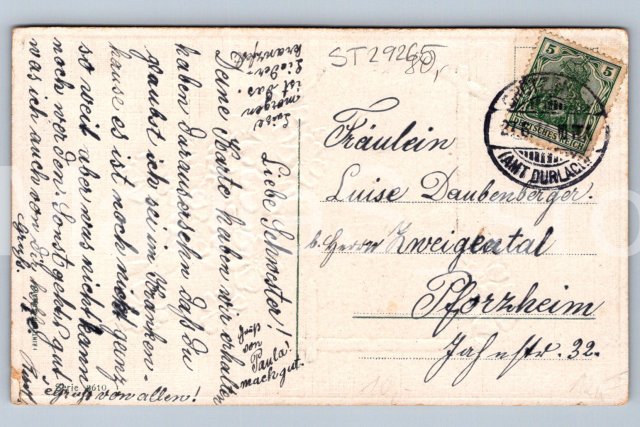 ST2926
80,-
5
DEUTSCHES REICH
(AMT DURLACH)
Fräulein
Luise Daubenberger.
b. Herrn Zweigental
Pforzheim
Jahnstr. 32.
Liebe Schwester!
Deine Karte haben wir erhalten
haben daraus ersehn daß du
glaubst ich sei im Kranken-
hause es ist noch nicht ganz
so weit aber was nicht kann
noch werden. Sonst geht's gut
was ich auch von Dir hoffe
Gruß.
Gruß von allen!
Luise
morgen
ist das
Lieder-
kranzfest
von
Paula
mach gut.
Serie 2610